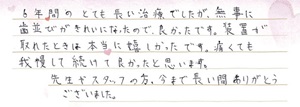 6年間のとても長い治療でしたが、無事に
歯並びがきれいになったので、良かったです。装置が
取れたときは本当に嬉しかったです。痛くても
我慢して続けて良かったと思います。
先生やスタッフの方、今まで長い間ありがとう
ございました。